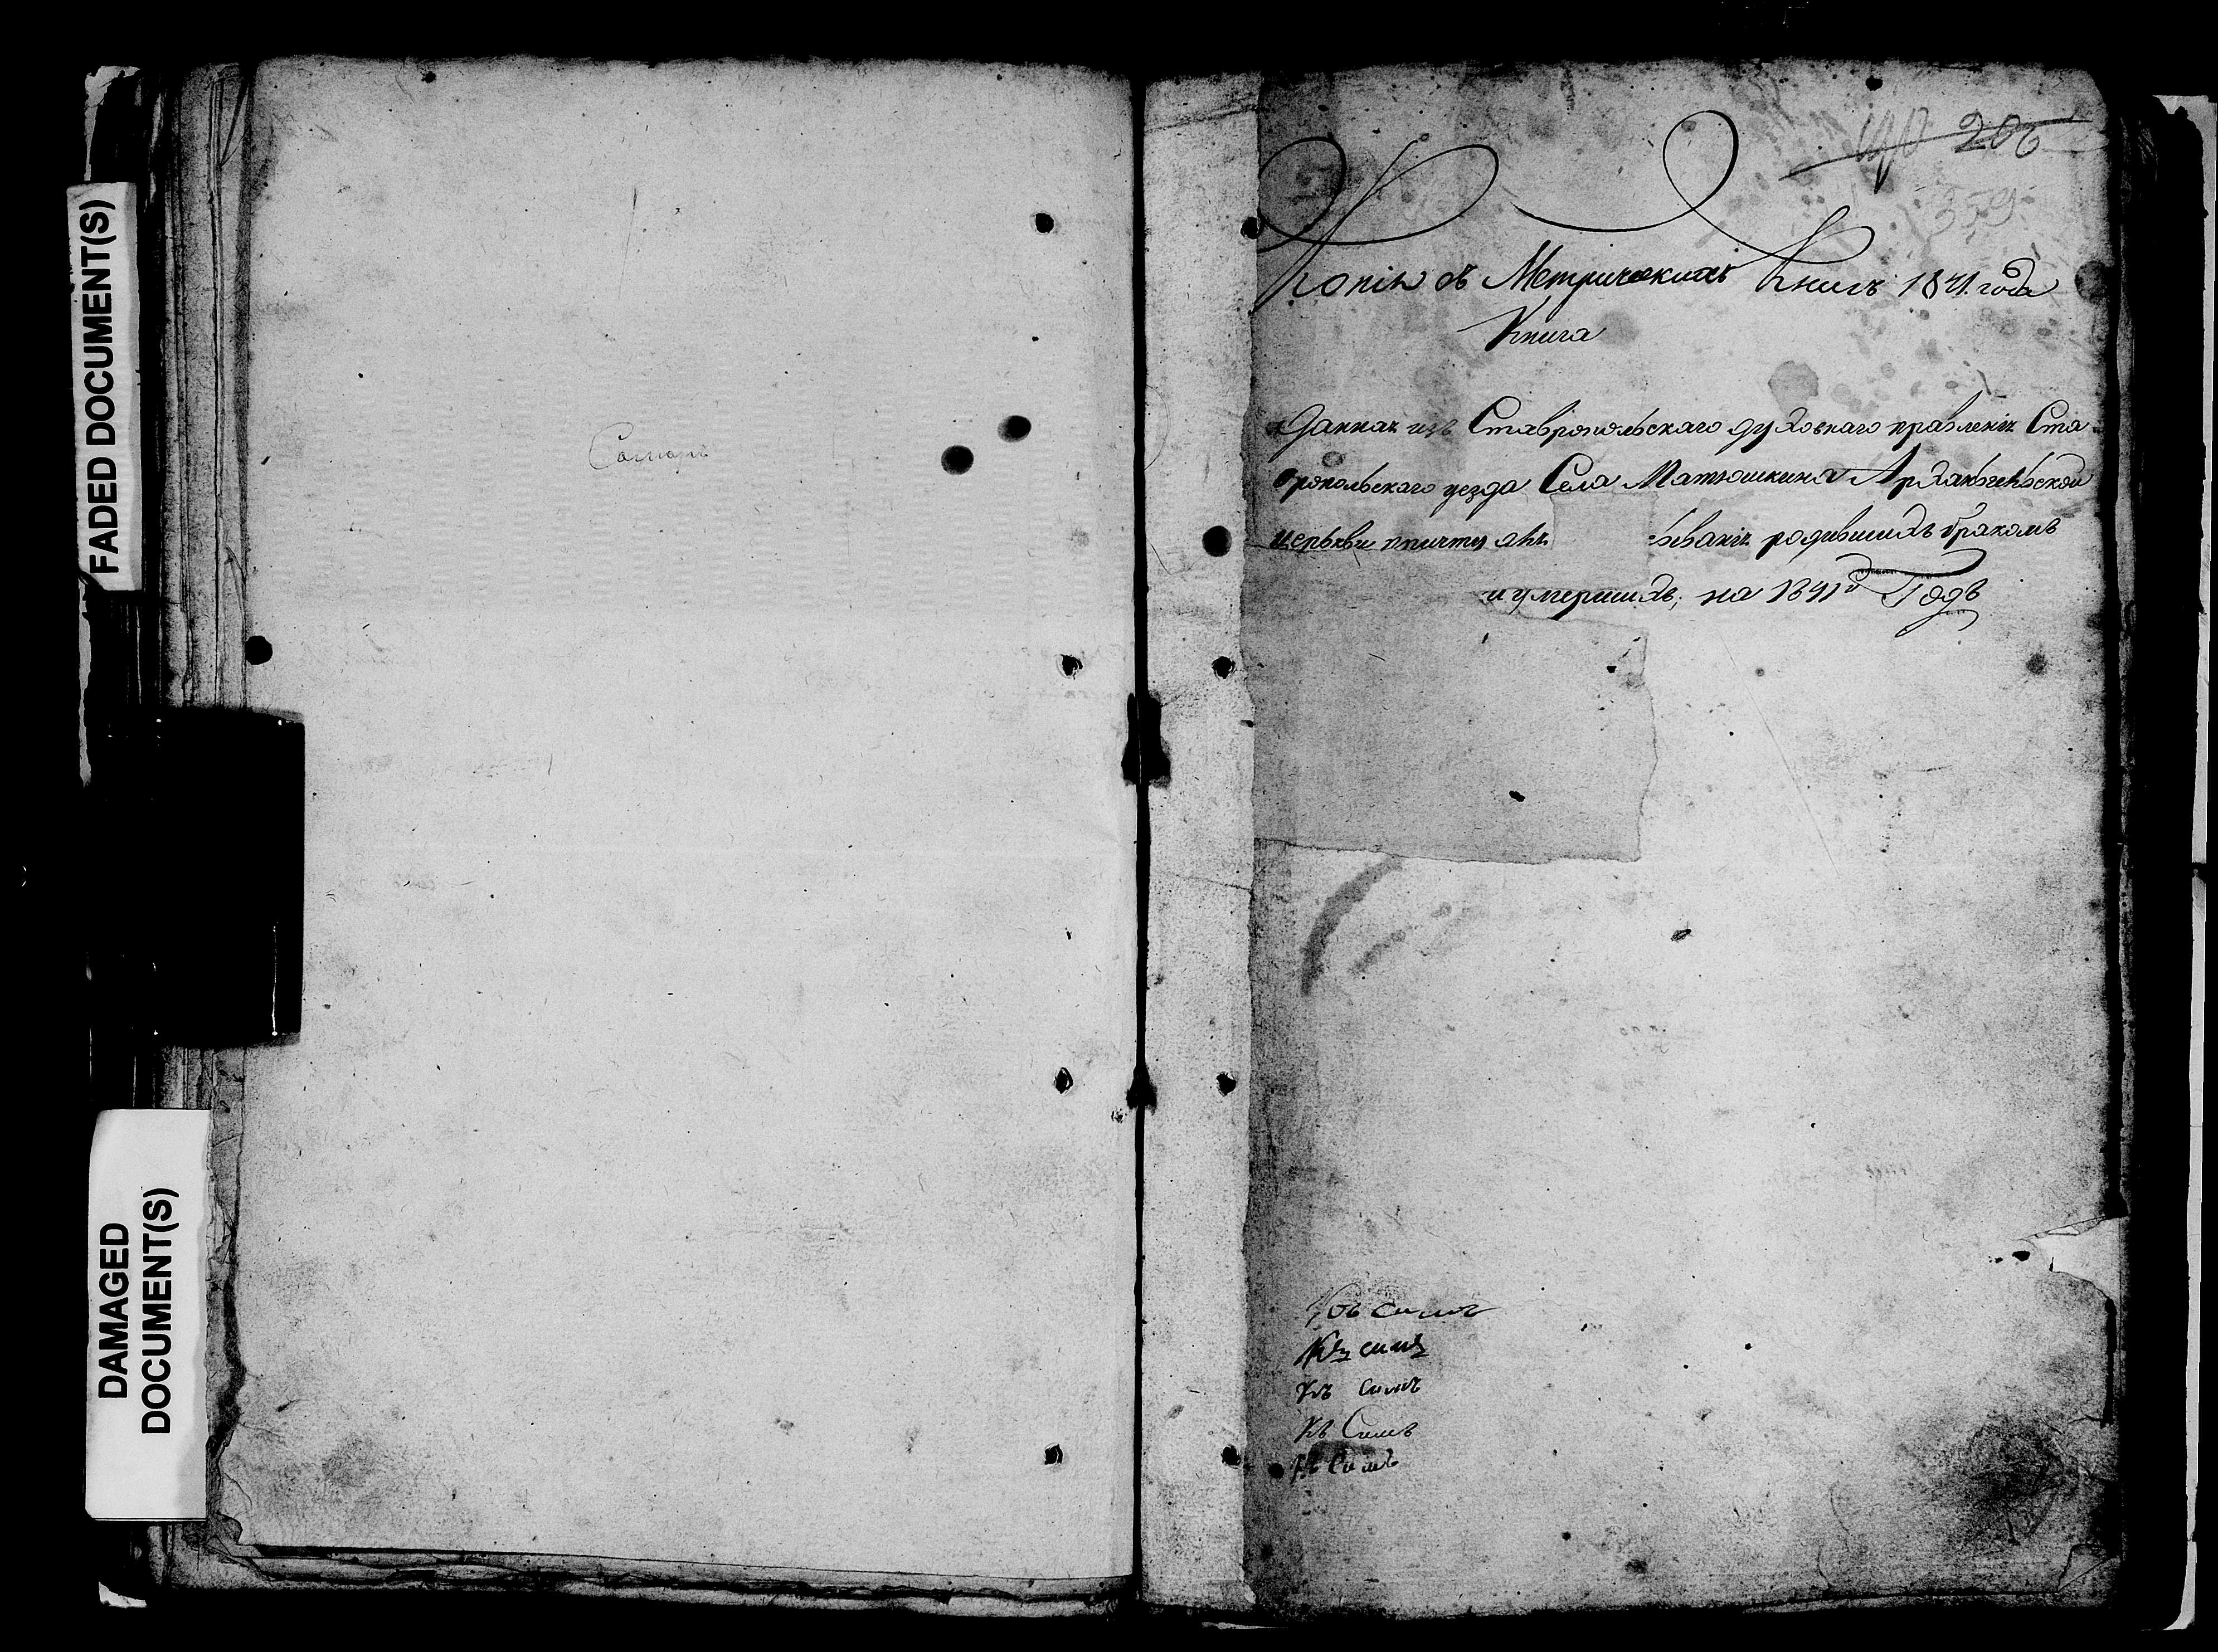 FADED DOCUMENT(S)
DAMAGED
DOCUMENT(S)
206
359
Копiи съ Метрическихъ Книгъ 1841. года
Книга
Данная изъ Ставропольскаго духовнаго правленiя Ста-
вропольскаго уезда Села Матюшкина Архангельской
церькви причту для ванiя родившихъ браком
и умершихъ; на 1841й Годъ
Къ симъ
Къ симъ
Къ Симъ
Къ Симъ